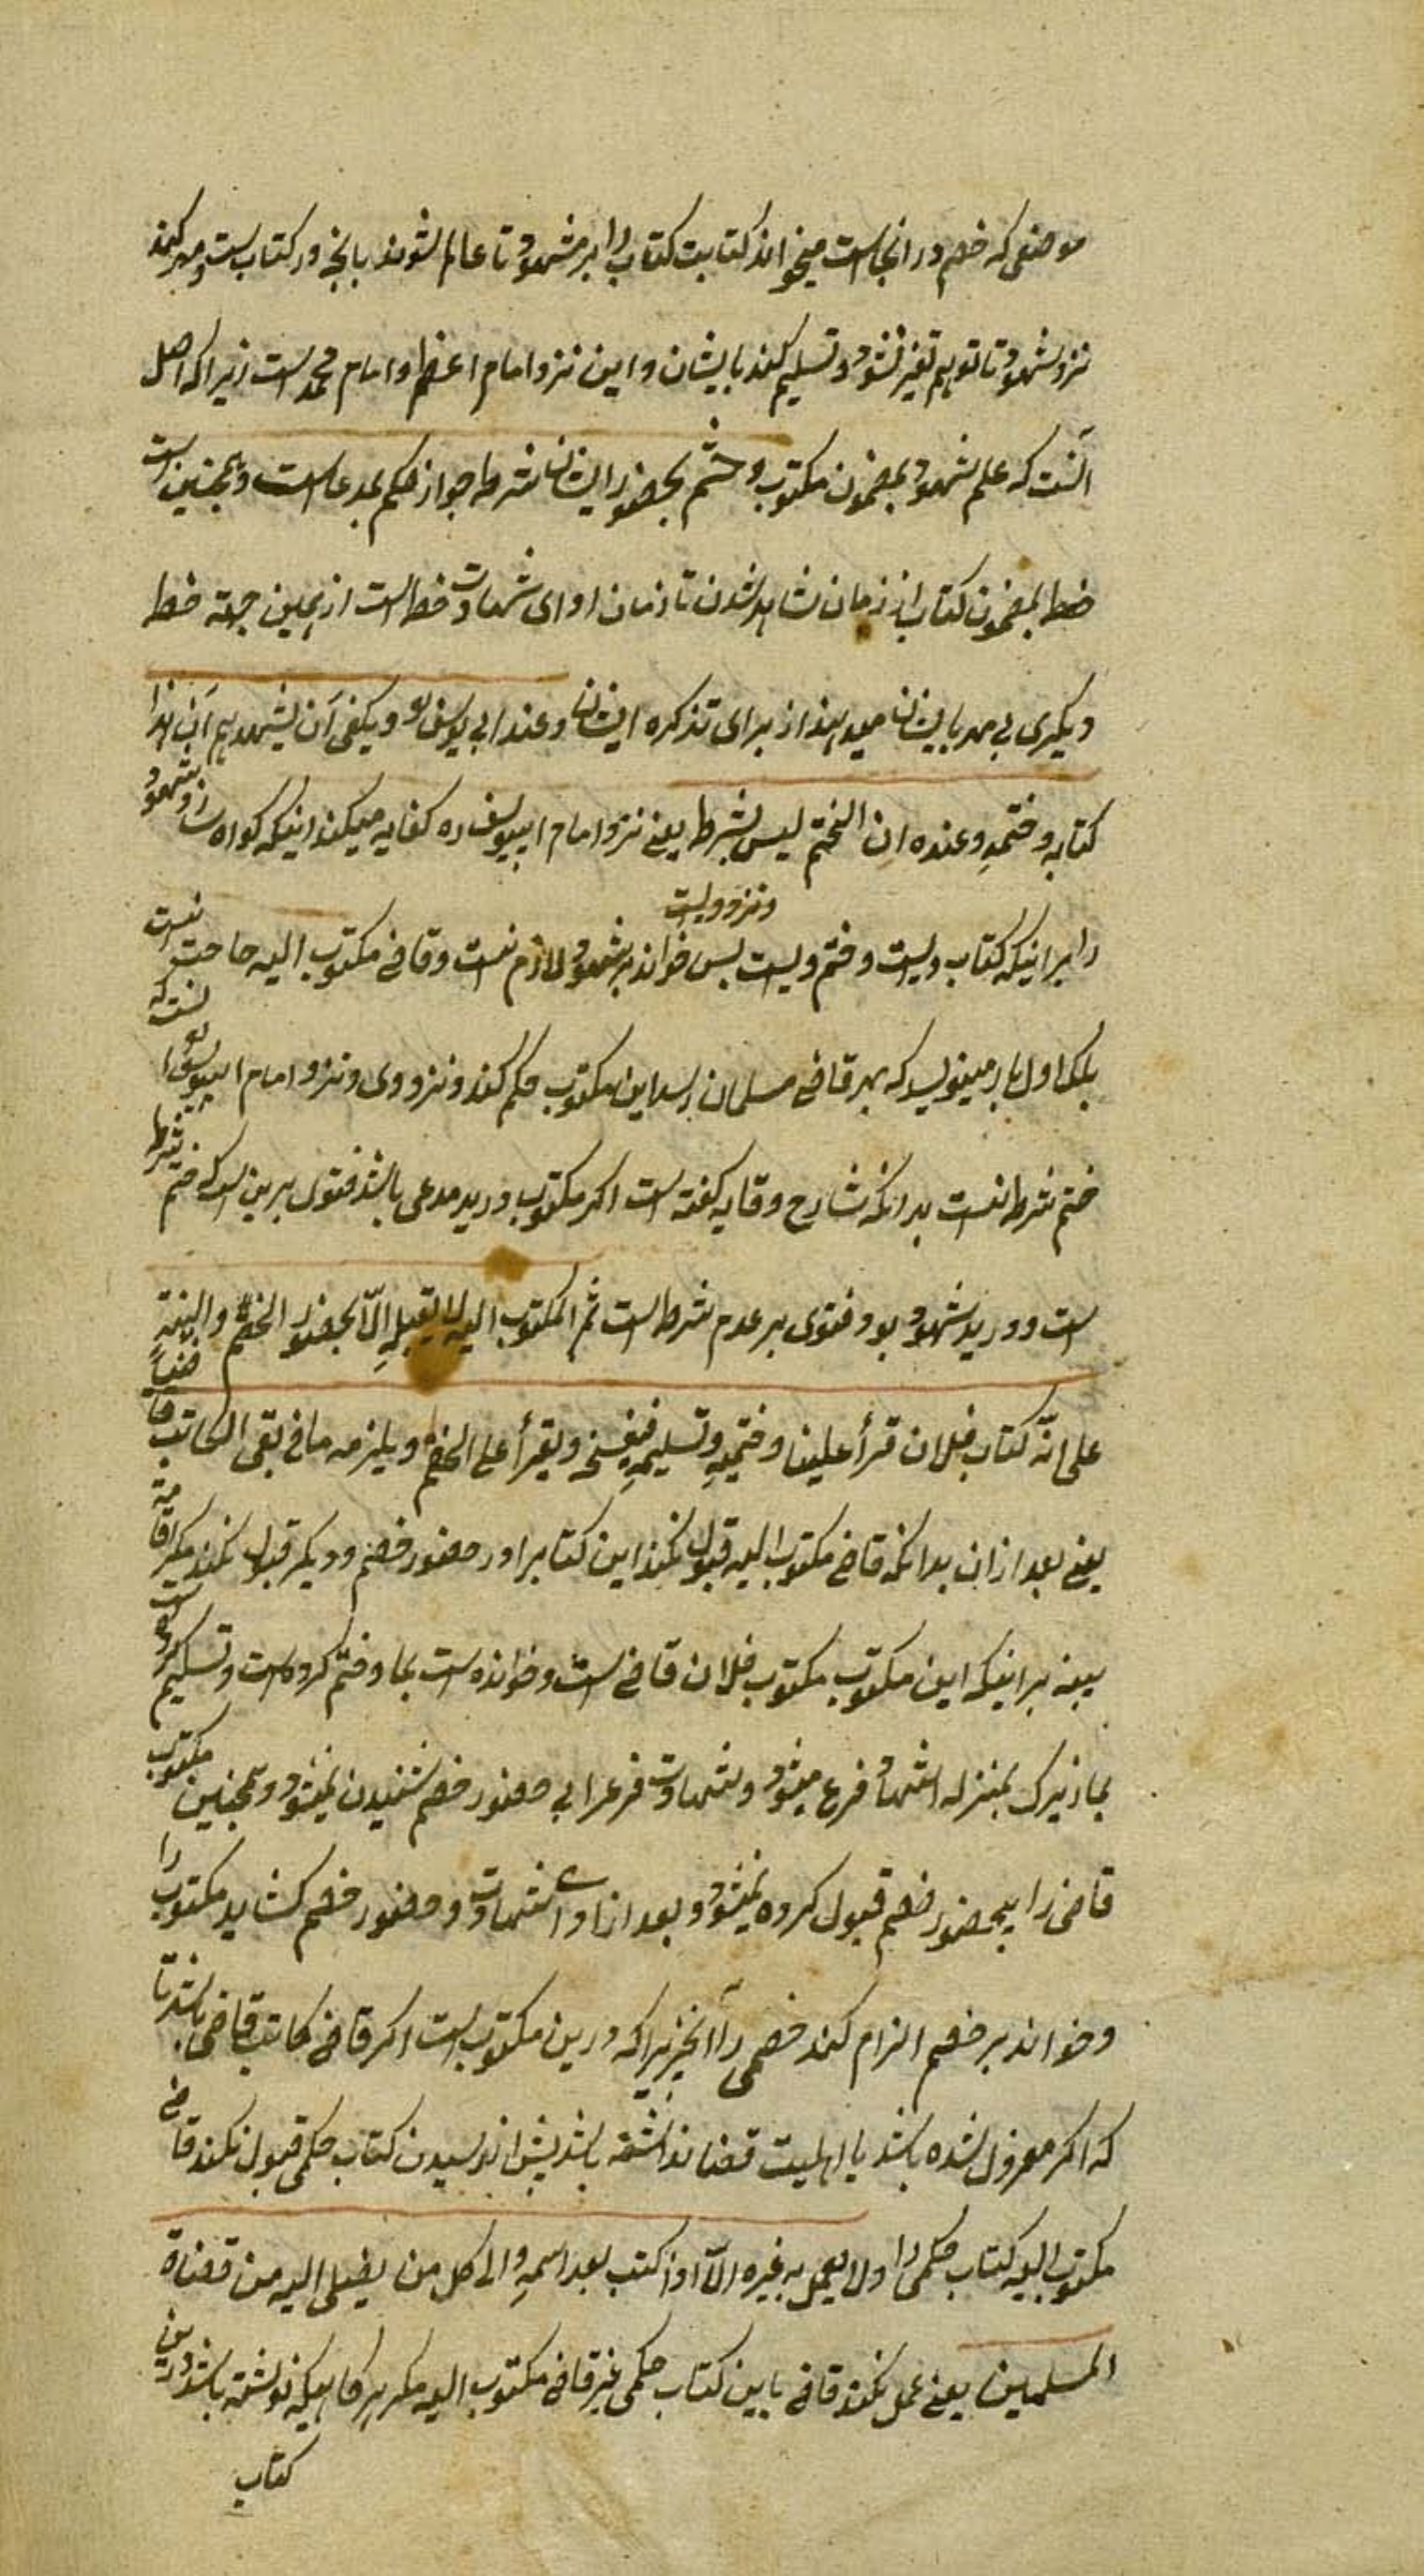 موضعی که خصم در انجاست میخواند کتابت کتاب را بر شهود تا عالم شوند بانچه در کتاب است و مهر کند
نزد شهود تا توهم تغیر نشود و تسلیم کند بایشان و این نزد امام اعظم و امام محمد است زیرا که اصل
آنست که علم شهود بمضمون مکتوب و ختم بحضور ایشان شرط جواز حکم بمدعا است و همچنین است
حفظ بمضمون کتاب از زمان شاهد شدن تا زمان ادای شهادت حفظ است از همین جهة خط
دیگری بی مهر بایشان میدهند از برای تذکره ایشان و عند ابی یوسف و یکفی آن یشهدهم آن هذا
کتابه و ختمه و عنده ان الختم لیس بشرط یعنی نزد امام ابییوسف ره کفایه میکند اینکه کواه سازد شهود
ونزد ویست
را بر اینکه کتاب ویست و ختم ویست پس خواند بر شهود لازم نیست و قاضی مکتوب الیه حاجت نیست
بلکه اول بار مینویسد که بهر قاضی مسلمان رسد این مکتوب حکم کند و نزد وی و نزد امام ابییوسف
ختم شرط نیست بدانکه شارح وقایه کفته است اکر مکتوب در ید مدعی باشد فتوی برین است که ختم شرط
است و در ید شهود بود فتوی بر عدم شرط است ثم المکتوب الیه لا یقبله الّا بحضور الخصم و البینة
علی انّه کتاب فلان قرأ علینا و ختمه و تسلیمه فیفتح و یقرأ علی الخصم و یلزمه ما فیه بقی الکاتب قاضیا
یعنی بعد از ان بدانکه قاضی مکتوب الیه قبول نکند این کتابرا در حضور خصم و دیکر قبول نکند مکر اقامة
بینه بر اینکه این مکتوب مکتوب فلان قاضی است و خوانده است بما و ختم کرده است و تسلیم کرده است
بما زیرک بمنزله شهادت فرع میشود و شهادت فرع را بی حضور خصم شنیدن نمیشود و همچنین مکتوب
قاضی را بیحضور خصم قبول کرده نمیشود و بعد از ادای شهادت و حضور خصم کشاید مکتوب را
و خواند بر خصم الزام کند خصمی را آنچیزیرا که درین مکتوب است اکر قاضی کاتب قاضی باشد تا
که اکر معزول شده باشد یا اهلیت قضا نداشته باشد پیش از رسیدن کتاب حکمی قبول نکند قاضی
مکتوب الیه کتاب حکمی را ولا یعمل به غیره الّا اذا کتب بعد اسمه والی کل من یصل الیه من قضاة
المسلمین یعنی عمل نکند قاضی باین کتاب حکمی غیر قاضی مکتوب الیه مکر هر کاهیکه نوشته باشد درین
کتاب